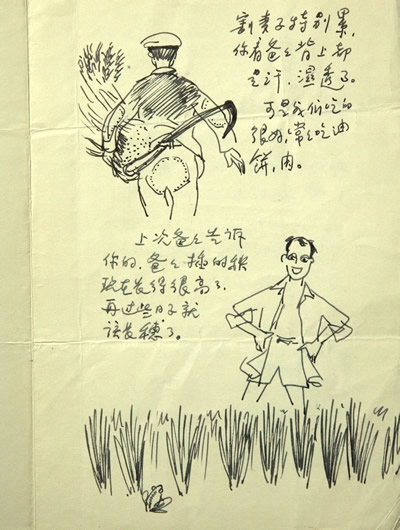 割麦子特别累,
你看爸々背上都
是汗,湿透了。
可是我们吃的
很好,常々吃油
饼,肉。
上次爸々告诉
你的,爸々插的秧
现在长得很高了,
再过些日子就
该长穗了。